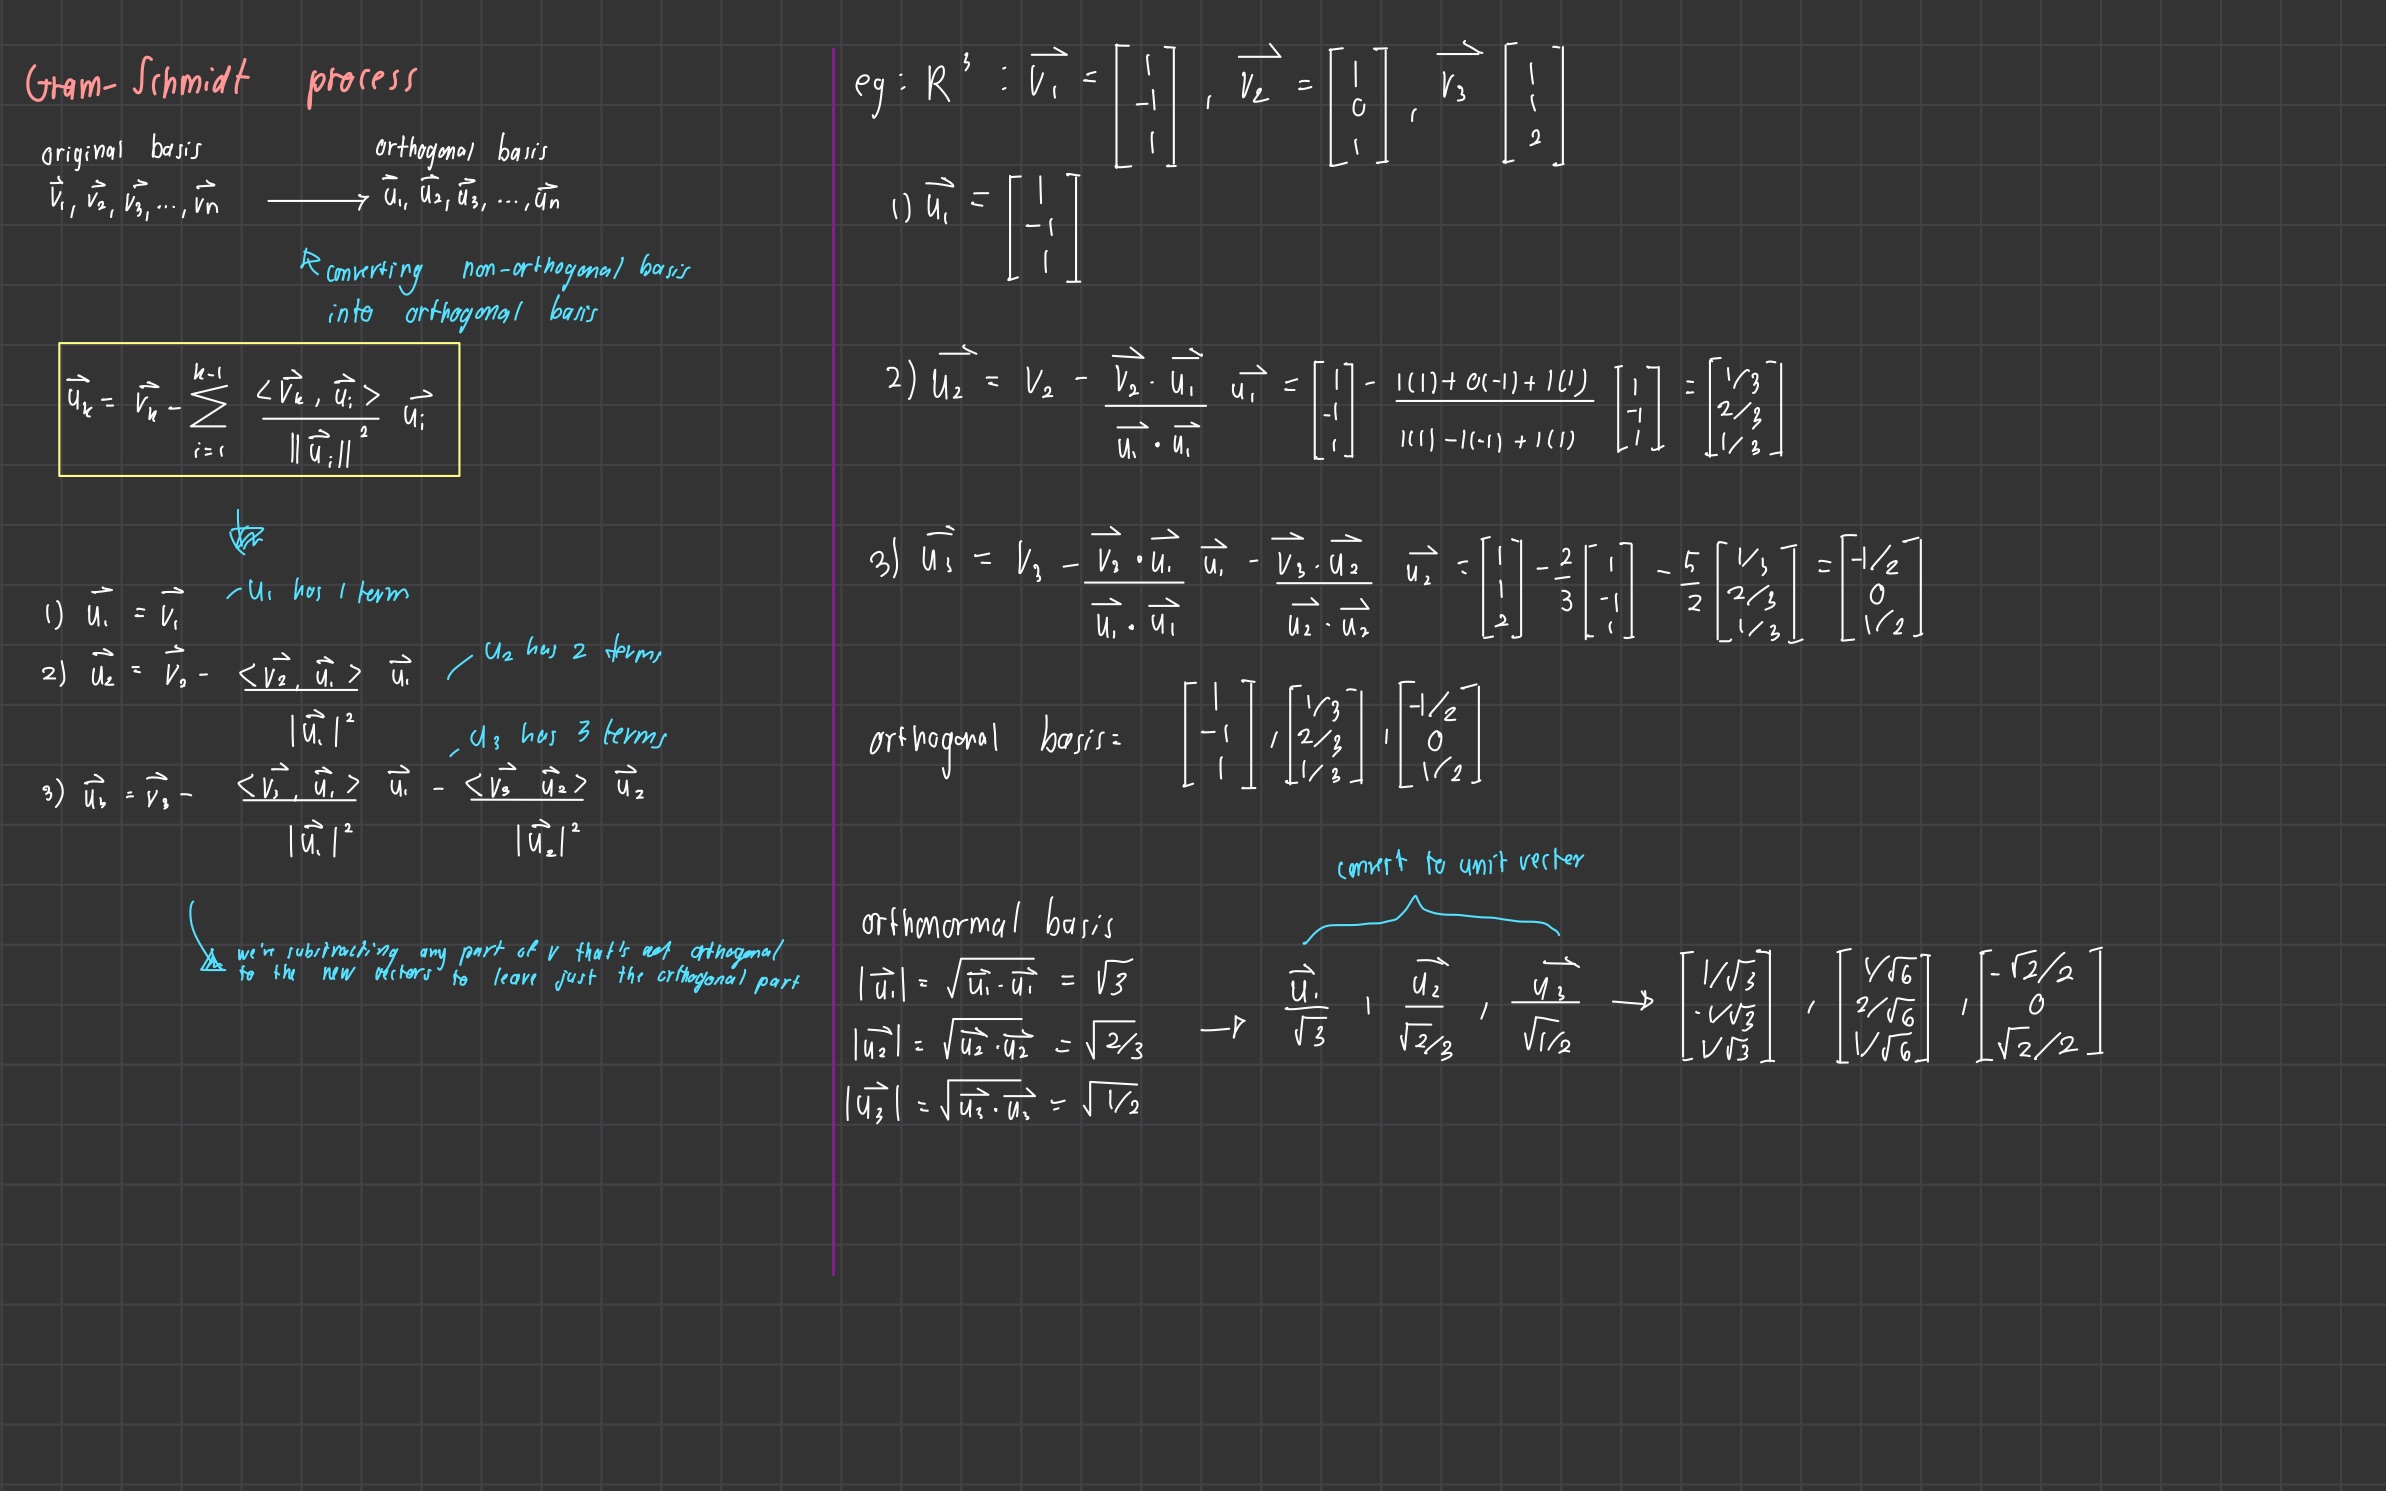 Gram-Schmidt process
original basis orthogonal basis
v⃗₁, v⃗₂, v⃗₃, ..., v⃗n ⟶ u⃗₁, u⃗₂, u⃗₃, ..., u⃗n
converting non-orthogonal basis
into orthogonal basis
u⃗k = v⃗k - Σ_{i=1}^{k-1} <v⃗k, u⃗i> / ||u⃗i||² u⃗i
u₁ has 1 term
1) u⃗₁ = v⃗₁
2) u⃗₂ = v⃗₂ - <v⃗₂, u⃗₁> / |u⃗₁|² u⃗₁
u₂ has 2 terms
u₃ has 3 terms
3) u⃗₃ = v⃗₃ - <v⃗₃, u⃗₁> / |u⃗₁|² u⃗₁ - <v⃗₃ u⃗₂> / |u⃗₂|² u⃗₂
we're substracting any part of v that's not orthogonal
to the new vectors to leave just the orthogonal part
eg: R³ : v⃗₁ = [1 -1 1], v⃗₂ = [1 0 1], v⃗₃ [1 1 2]
1) u⃗₁ = [1 -1 1]
2) u⃗₂ = v₂ - v⃗₂·u⃗₁ / u⃗₁·u⃗₁ u⃗₁ = [1 -1 1] - 1(1)+0(-1)+1(1) / 1(1)-1(-1)+1(1) [1 -1 1] = [1/3 2/3 1/3]
3) u⃗₃ = v₃ - v⃗₃·u⃗₁ / u⃗₁·u⃗₁ u⃗₁ - v⃗₃·u⃗₂ / u⃗₂·u⃗₂ u⃗₂ = [1 1 2] - 2/3 [1 -1 1] - 5/2 [1/3 2/3 1/3] = [-1/2 0 1/2]
orthogonal basis = [1 -1 1], [1/3 2/3 1/3], [-1/2 0 1/2]
convert to unit vector
orthonormal basis
|u⃗₁| = √(u⃗₁·u⃗₁) = √3
|u⃗₂| = √(u⃗₂·u⃗₂) = √(2/3)
|u⃗₃| = √(u⃗₃·u⃗₃) = √(1/2)
→ u⃗₁/√3, u⃗₂/√2/3, u⃗₃/√1/2 → [1/√3 -1/√3 1/√3], [1/√6 2/√6 1/√6], [-√2/2 0 √2/2]